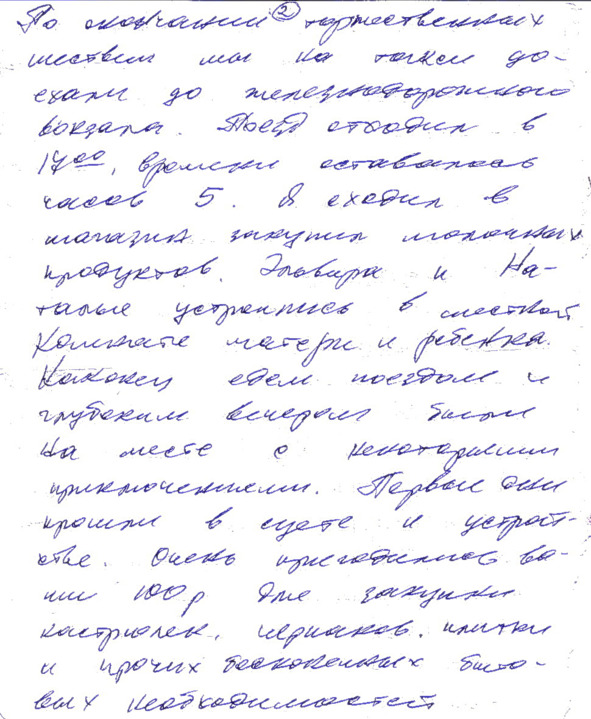 2
По окончании торжественных
шествий мы на такси до-
ехали до железнодорожного
вокзала. Поезд отходил в
17 00, времени оставалось
часов 5. Я сходил в
магазин закупил молочных
продуктов. Эльвира и На-
талья устроились в местной
комнате матери и ребенка.
Наконец едем поездом и
глубоким вечером были
на месте с некоторыми
приключениями. Первые дни
прошли в суете и устрой-
стве. Очень пригодились ва-
ши 100 р для закупки
кастрюлек, черпаков, плитки
и прочих бесконечных быто-
вых необходимостей